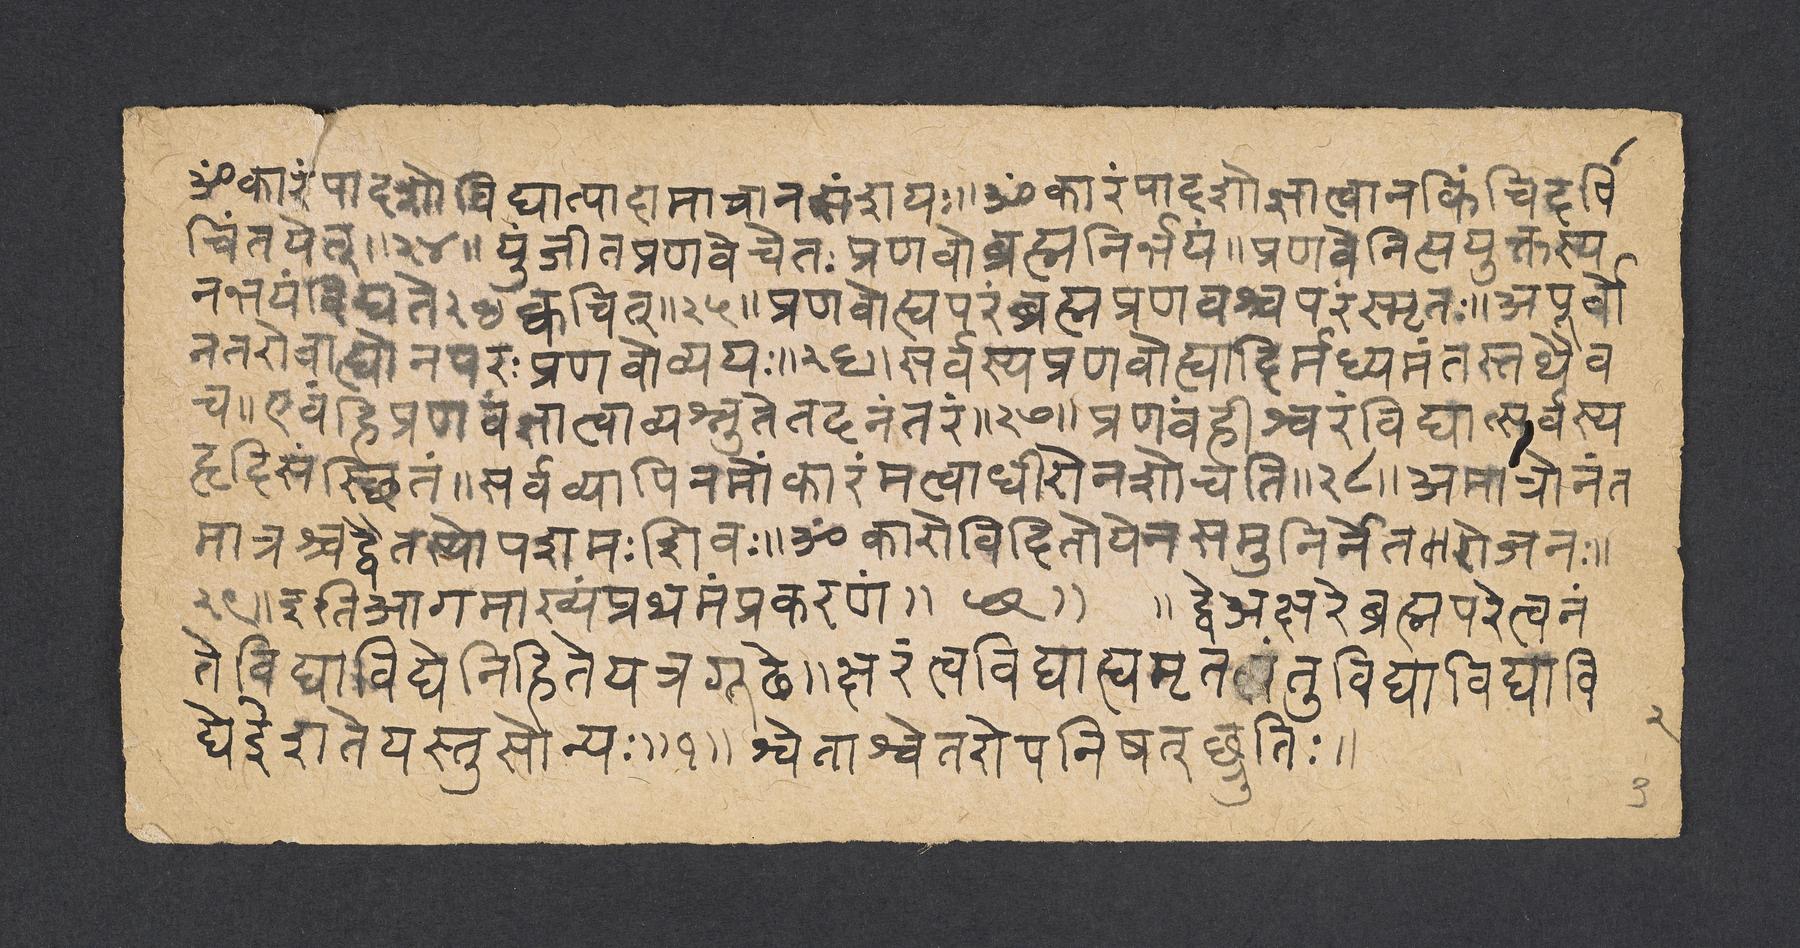 ॐकारंपादशोविद्यात्पादामात्रानसंशयः॥ॐकारंपादशोज्ञात्वानकिंचिदपि
चिंतयेत्॥२४॥युंजीतप्रणवेचेतःप्रणवोब्रह्मनिर्भयं॥प्रणवेनित्ययुक्तस्य
नभयंविद्यते२७क्वचित्॥२५॥प्रणवोह्यपरंब्रह्मप्रणवश्चपरंस्मृतः॥अपूर्वो
नतरोबाह्योनपरःप्रणवोव्ययः॥२६॥सर्वस्यप्रणवोह्यादिर्मध्यमंतस्तथैव
च॥एवंहिप्रणवंज्ञात्वाव्यश्नुतेतदनंतरं॥२७॥प्रणवंहीश्वरंविद्यात्सर्वस्य
हृदिसंस्थितं॥सर्वव्यापिनमोंकारंमत्वाधीरोनशोचति॥२८॥अमात्रोनंत
मात्रश्चद्वैतस्योपशमःशिवः॥ॐकारोविदितोयेनसमुनिर्नेतरोजनः॥
२९॥इतिआगमाख्यंप्रथमंप्रकरणं॥ ॥ ॥द्वेअक्षरेब्रह्मपरेत्वनं
तेविद्याविद्येनिहितेयत्रगूढे॥क्षरंत्वविद्याह्यमृतंतुविद्याविद्यावि
द्येईशतेयस्तुसोन्यः॥१॥श्वेताश्वेतरोपनिषत्छ्रुतिः॥
२
3